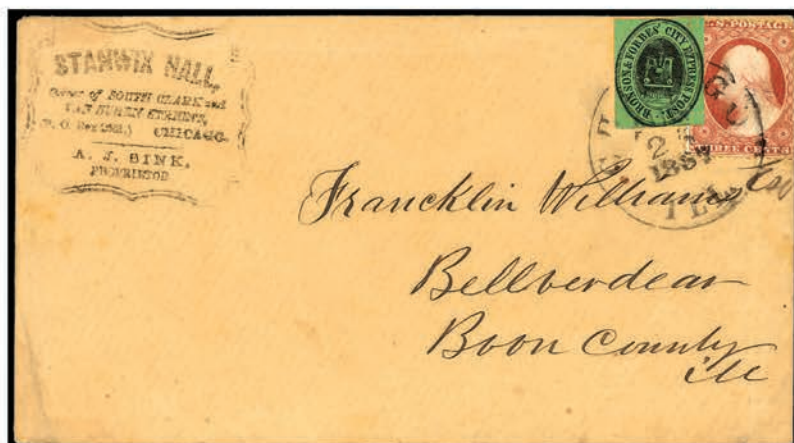 STANWIX HALL,
Corner of SOUTH CLARK and
VAN BUREN STREETS,
(P. O. Box ) CHICAGO.
A. J. SINK,
PROPRIETOR
BRONSON & FORBES' CITY EXPRESS POST.
U.S. POSTAGE
THREE CENTS
2
185
ILL
Francklin Williams
Bellverdear
Boon County
Ill